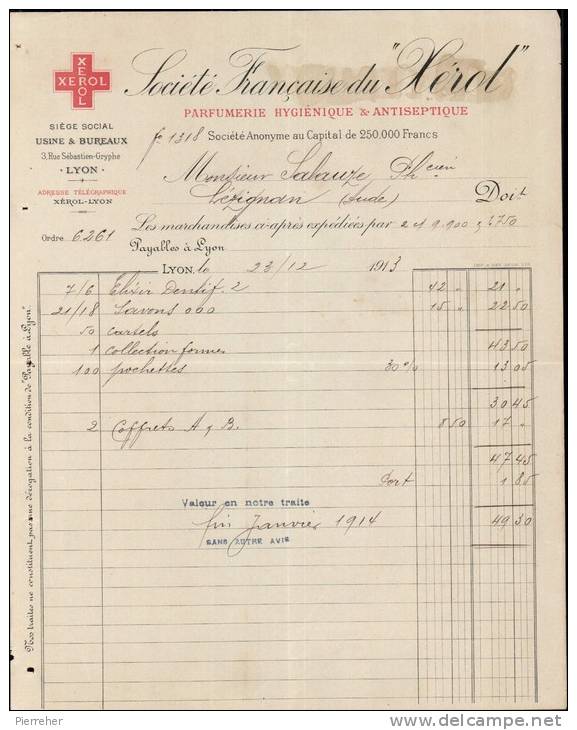 XEROL
XEROL
Société Française du "Xérol"
PARFUMERIE HYGIÉNIQUE & ANTISEPTIQUE
SIÈGE SOCIAL
USINE & BUREAUX
3, Rue Sébastien-Gryphe
LYON
ADRESSE TÉLÉGRAPHIQUE
XÉROL-LYON
fo 1318 Société Anonyme au Capital de 250.000 Francs
Monsieur Salauze Phcien
Lézignan (Aude) Doit
Ordre 6.261
Les marchandises ci-après expédiées par
Payables à Lyon
LYON, le 23/12 1913
7/6 Elixir Dentif. 2 42 " 21 "
21/18 Savons 000 15 " 22 50
50 cartels
43 50
1 collection formes
100 pochettes 30 % 13 05
30 45
2 Coffrets A & B. 8 50 17 "
47 45
Port 1 85
49 30
Valeur en notre traite
fin Janvier 1914
SANS AUTRE AVIS
Nos traites ne constituent pas une dérogation à la condition de "Payable à Lyon".
Pierreher
delcampe.net